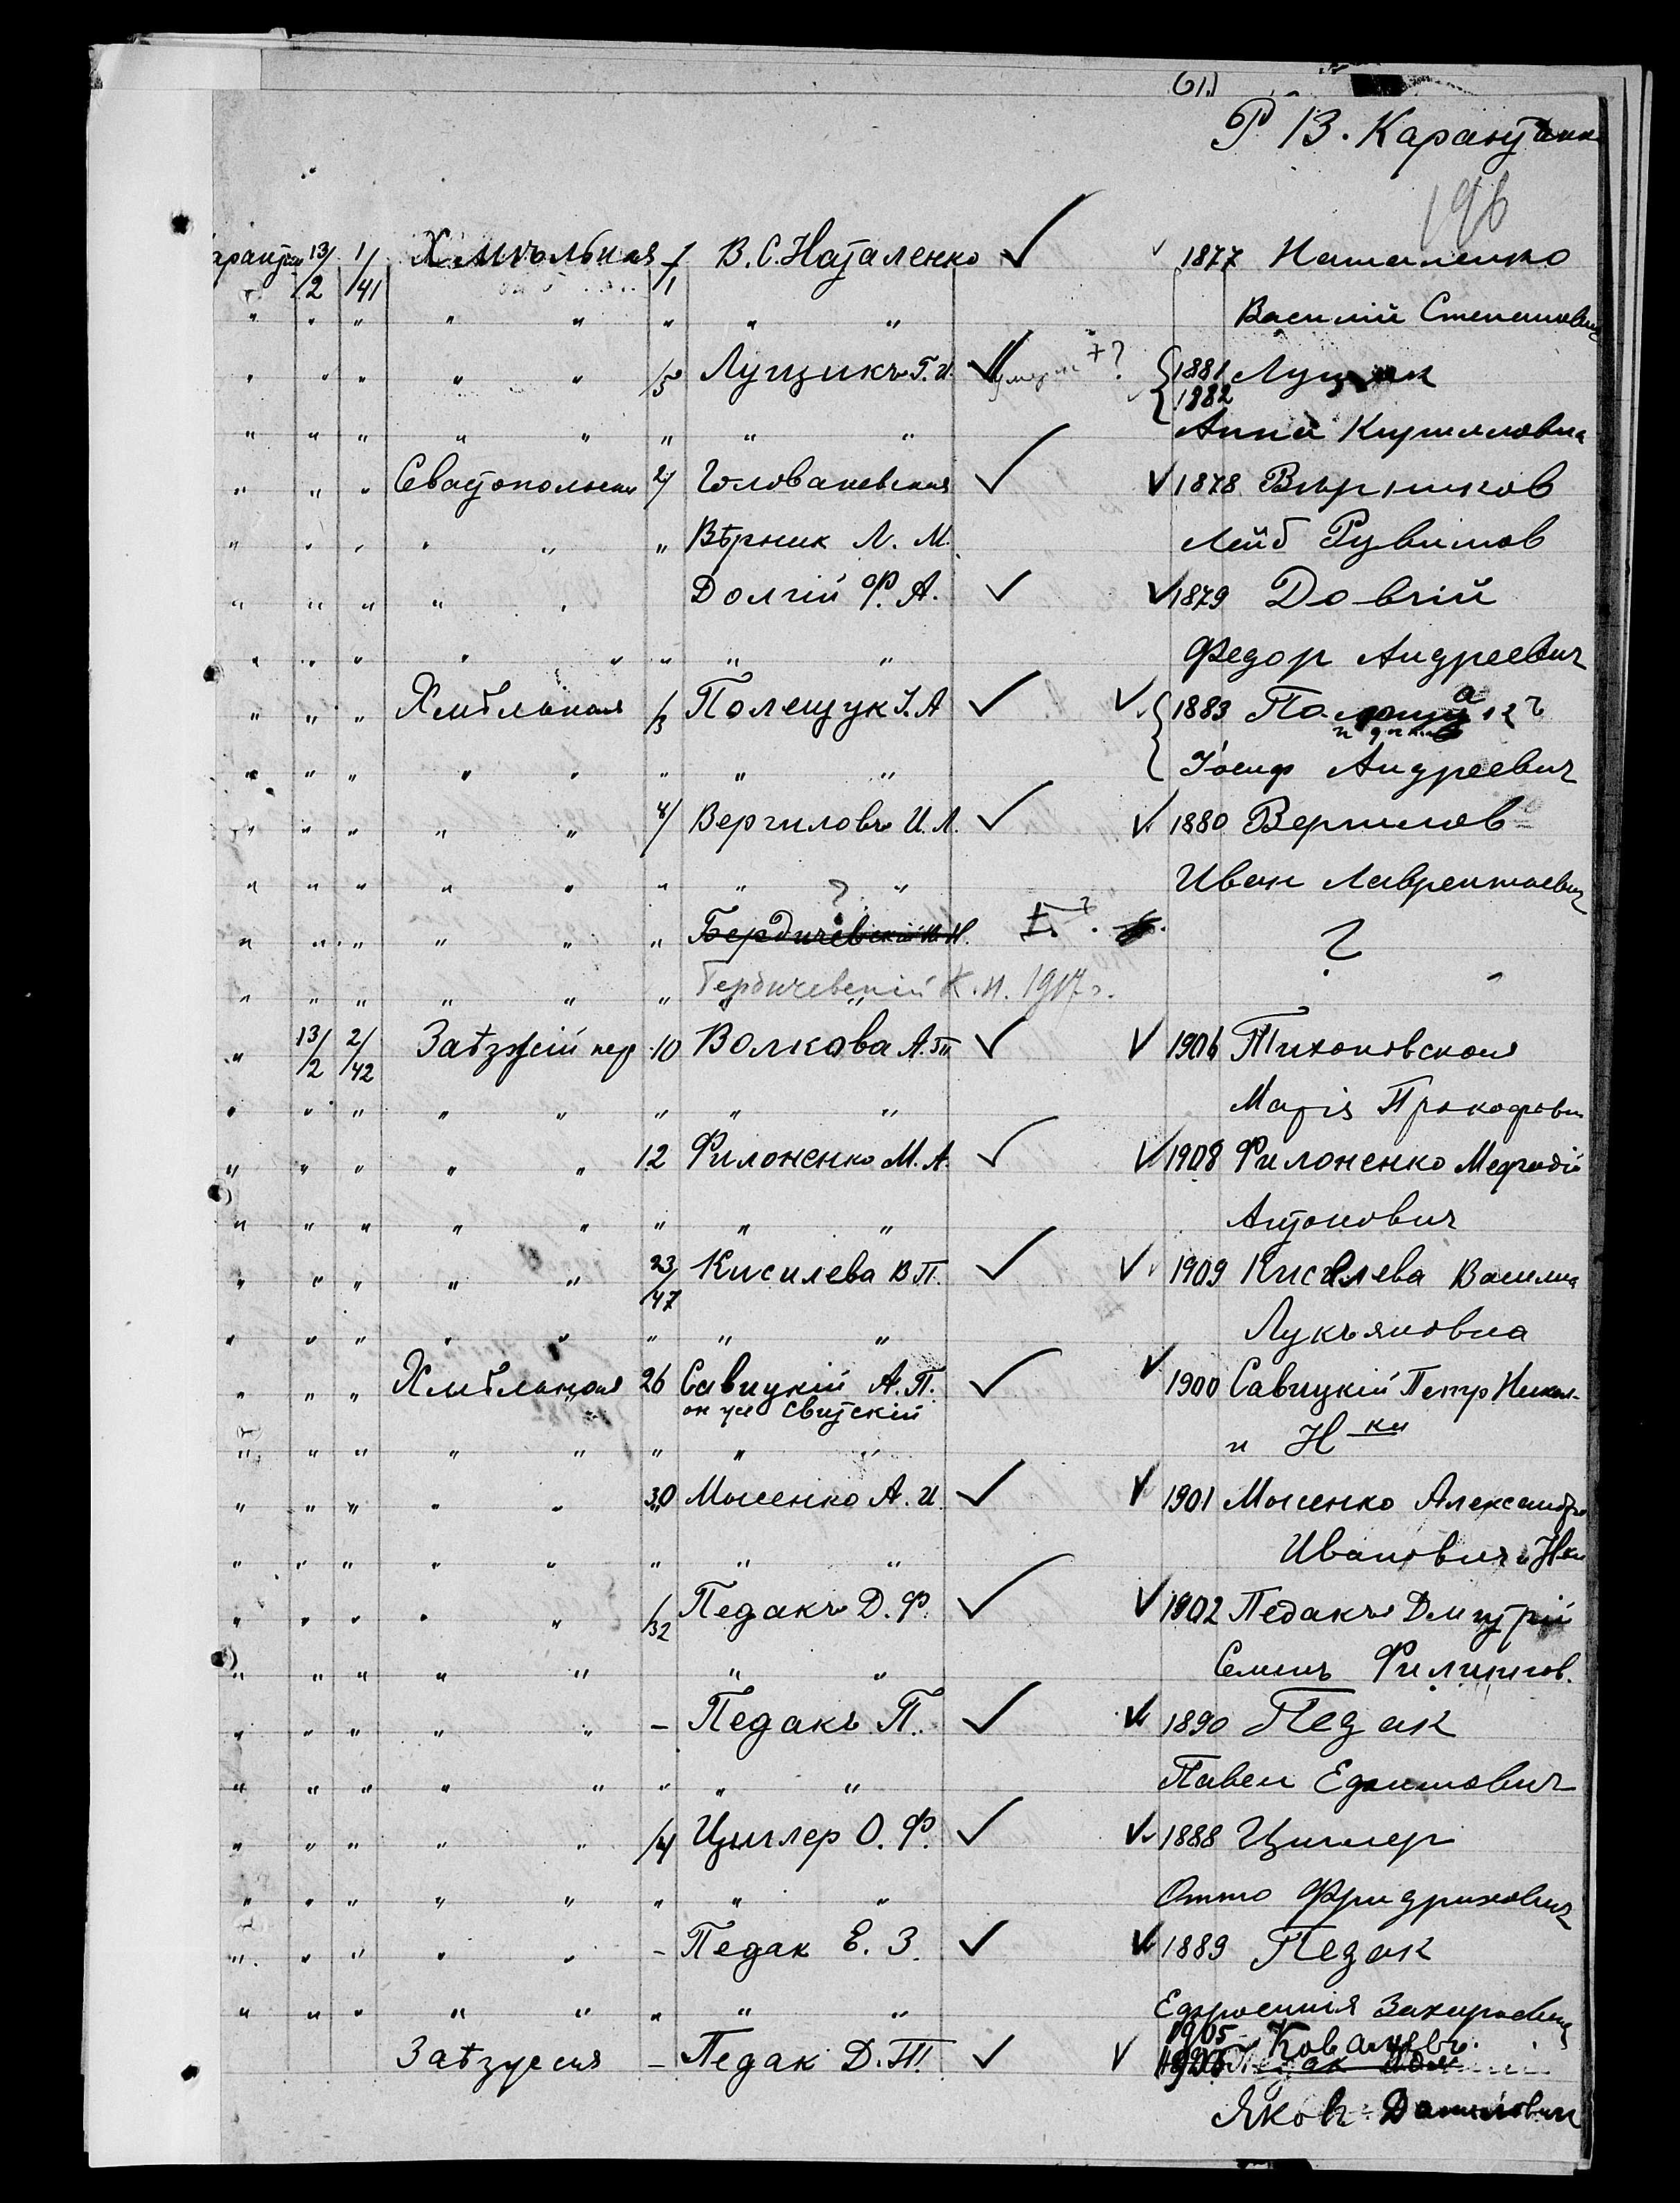 61.)
Р 13. Карант
196
арант 13/2 1/41 Хмѣльная 1/1 В. С. Наталенко ✓ ✓ 1877 Наталенко
" " " " " " " " Василий Степанович
" " " " " /5 Лущикъ Г. И. ✓ умерла +? 1881 1882 Лущик
" " " " " " " " Анна Кирилловна
" " " Севастопольская 2/ Голованевская ✓ ✓ 1878 Вѣрников
" " " " " " Вѣрник Л. М. Лейб Рувимов
" " " " " Долгій Ф. А. ✓ ✓ 1879 Довгій
" " " " " " " " Федор Андреевич
" " " Хмѣльная /3 Полещук І. А ✓ ✓ 1883
" " " " " " " " Іосиф Андреевич
" " " " " 4/ Вергиловъ И. Л. ✓ ✓ 1880 Вергилов
" " " " " " " ? " Иван Лаврентьевич
" " " " " " Бердичевскій И. Н. ?
" " " " " " Гербичевскій К. И. 1917 г.
" 13/2 2/42 Заѣзжій пер 10 Волкова А. П ✓ ✓ 1906 Тихоновская
" " " " " " " " Марія Прокофьевн
" " " " " 12 Филоненко М. А. ✓ ✓ 1908 Филоненко Мефодій
" " " " " " " " Антонович
" " " " " 23/47 Кисилева В П. ✓ ✓ 1909 Киселева Василиа
" " " " " " " " Лукьяновна
" " " Хмѣльная 26 Савицкій А. П. ✓ ✓ 1900 Савицкій Петр Никол.
он же Свитскій
" " " " " " " " и Н-ки
" " " " " 30 Мосенко А. И. ✓ ✓ 1901 Мосенко Александр
" " " " " " " " Иванович и Н-ки
" " " " " /32 Педакъ Д. Ф. ✓ ✓ 1902 Педакъ Дмитрій
" " " " " " " Семенъ Филиппов.
" " " " " – Педакъ П. ✓ ✓ 1890 Педак
" " " " " " " " Павел Ефимович
" " " " " /34 Циглер О. Ф. ✓ ✓ 1888 Циглер
" " " " " " " " Отто Фридрихович
" " " " " – Педак Е. З. ✓ ✓ 1889 Педак
" " " " " " " " Ефросинія Захаровна
1905 Ковалевъ
Заѣзжая – Педак Д. П. ✓ ✓
Яковъ Данилович